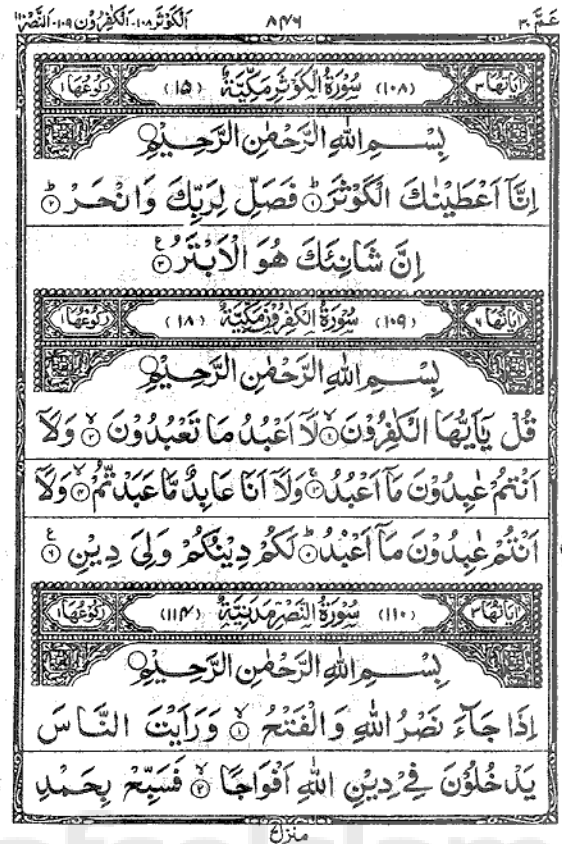 عَمَّ ۳۰ ۸۴۶ اَلْكَوْثَر ۱۰۸۔ اَلْكٰفِرُوْن ۱۰۹۔ اَلنَّصْر ۱۱۰
اٰيَاتُهَا ۳ (۱۰۸) سُوْرَةُ الْكَوْثَرِ مَكِّيَّةٌ (۱۵) رُكُوْعُهَا ۱
بِسْمِ اللهِ الرَّحْمٰنِ الرَّحِيْمِ
اِنَّاۤ اَعْطَيْنٰكَ الْكَوْثَرَؕ۝۱ فَصَلِّ لِرَبِّكَ وَانْحَرْؕ۝۲
اِنَّ شَانِئَكَ هُوَ الْاَبْتَرُ۝۳ع
اٰيَاتُهَا ۶ (۱۰۹) سُوْرَةُ الْكٰفِرُوْنَ مَكِّيَّةٌ (۱۸) رُكُوْعُهَا ۱
بِسْمِ اللهِ الرَّحْمٰنِ الرَّحِيْمِ
قُلْ يٰۤاَيُّهَا الْكٰفِرُوْنَۙ۝۱ لَاۤ اَعْبُدُ مَا تَعْبُدُوْنَۙ۝۲ وَلَاۤ
اَنْتُمْ عٰبِدُوْنَ مَاۤ اَعْبُدُۚ۝۳ وَلَاۤ اَنَا عَابِدٌ مَّا عَبَدْتُّمْۙ۝۴ وَلَاۤ
اَنْتُمْ عٰبِدُوْنَ مَاۤ اَعْبُدُؕ۝ لَكُمْ دِيْنُكُمْ وَلِيَ دِيْنِ۝۶ع
اٰيَاتُهَا ۳ (۱۱۰) سُوْرَةُ النَّصْرِ مَدَنِيَّةٌ (۱۱۴) رُكُوْعُهَا ۱
بِسْمِ اللهِ الرَّحْمٰنِ الرَّحِيْمِ
اِذَا جَآءَ نَصْرُ اللهِ وَالْفَتْحُۙ۝۱ وَرَاَيْتَ النَّاسَ
يَدْخُلُوْنَ فِيْ دِيْنِ اللهِ اَفْوَاجًاۙ۝۲ فَسَبِّحْ بِحَمْدِ